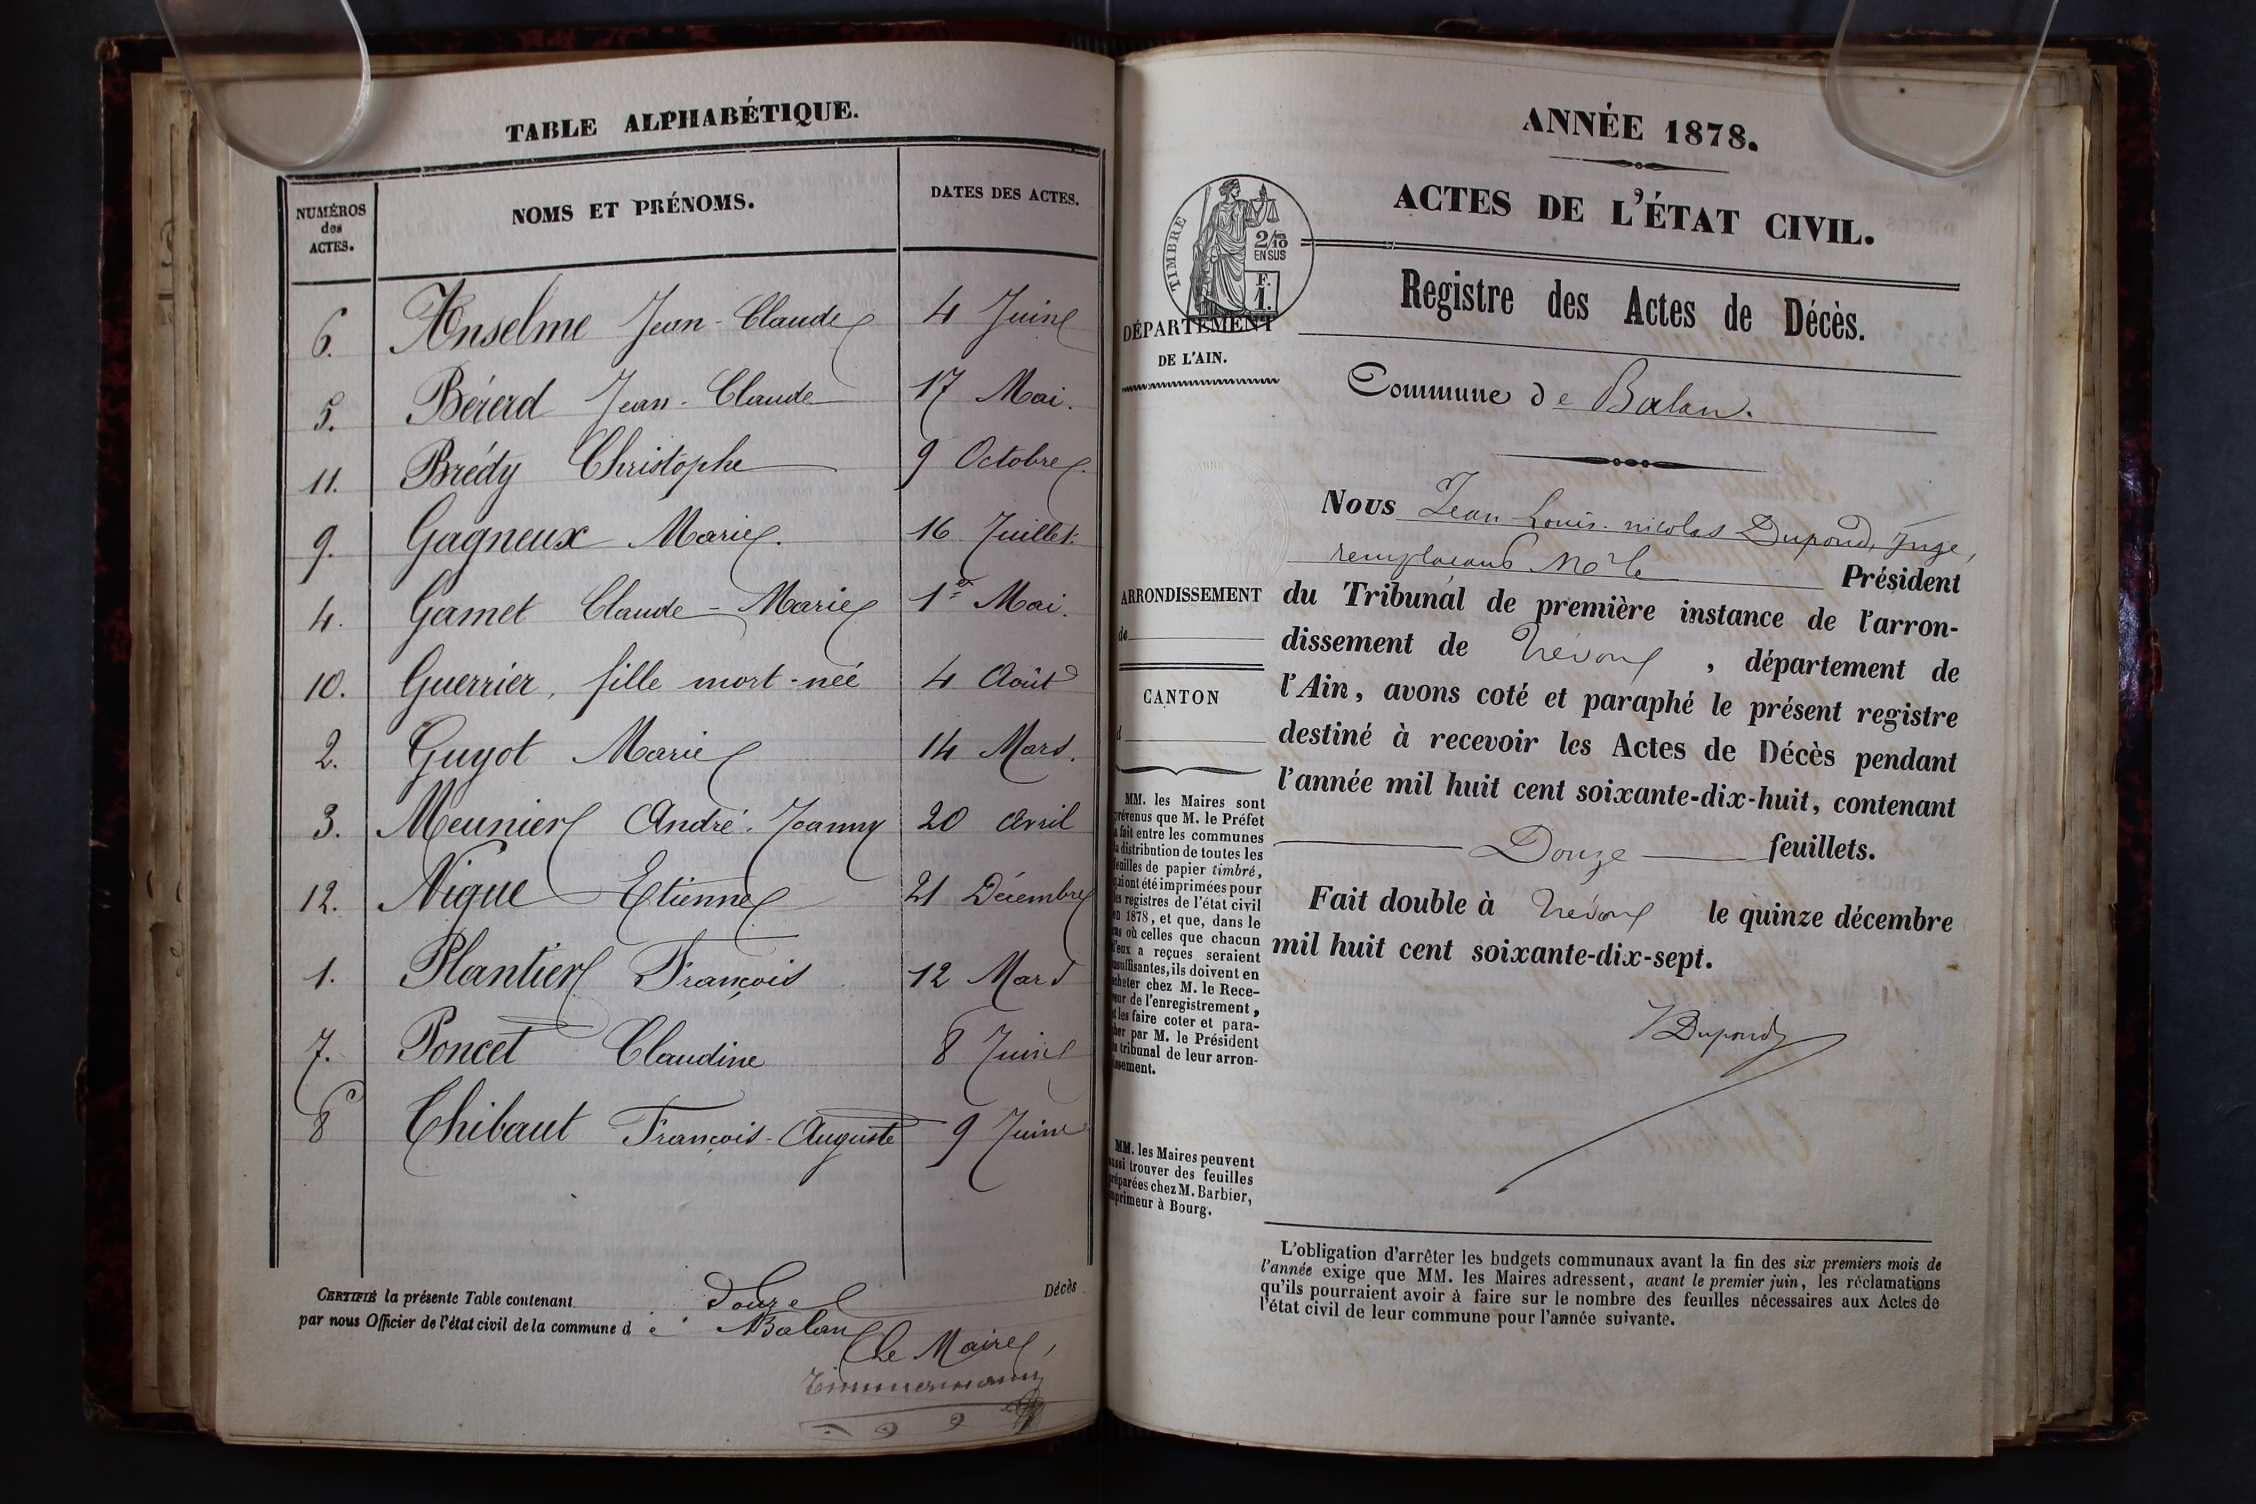 TABLE ALPHABÉTIQUE.
NUMÉROS des ACTES. NOMS ET PRÉNOMS. DATES DES ACTES.
6. Anselme Jean-Claude 4 Juin
5. Bérerd Jean-Claude 17 Mai.
11. Brédy Christophe 9 Octobre.
9. Gagneux Marie. 16 Juillet.
4. Gamet Claude-Marie 1er Mai.
10. Guerrier, fille mort-née 4 Août
2. Guyot Marie 14 Mars.
3. Meunier André-Joanny 20 Avril
12. Nique Etienne 21 Décembre
1. Plantier François 12 Mars
7. Poncet Claudine 8 Juin
8 Thibaut François-Auguste 9 Juin
CERTIFIÉ la présente Table contenant douze Décès
par nous Officier de l'état civil de la commune de Balan
Le Maire,
ANNÉE 1878.
ACTES DE L'ÉTAT CIVIL.
TIMBRE
2/10 EN SUS
F. 1.
DÉPARTEMENT
DE L'AIN.
Registre des Actes de Décès.
Commune de Balan.
Nous Jean Louis nicolas Dupond, Juge,
remplaçant Mr le Président
du Tribunal de première instance de l'arron-
dissement de Trévoux, département de
l'Ain, avons coté et paraphé le présent registre
destiné à recevoir les Actes de Décès pendant
l'année mil huit cent soixante-dix-huit, contenant
Douze feuillets.
Fait double à Trévoux le quinze décembre
mil huit cent soixante-dix-sept.
Dupond
ARRONDISSEMENT
de
CANTON
d
MM. les Maires sont
prévenus que M. le Préfet
a fait entre les communes
la distribution de toutes les
feuilles de papier timbré,
qui ont été imprimées pour
les registres de l'état civil
en 1878, et que, dans le
cas où celles que chacun
d'eux a reçues seraient
insuffisantes, ils doivent en
acheter chez M. le Rece-
veur de l'enregistrement,
et les faire coter et para-
pher par M. le Président
du tribunal de leur arron-
dissement.
MM. les Maires peuvent
aussi trouver des feuilles
préparées chez M. Barbier,
imprimeur à Bourg.
L'obligation d'arrêter les budgets communaux avant la fin des six premiers mois de
l'année exige que MM. les Maires adressent, avant le premier juin, les réclamations
qu'ils pourraient avoir à faire sur le nombre des feuilles nécessaires aux Actes de
l'état civil de leur commune pour l'année suivante.